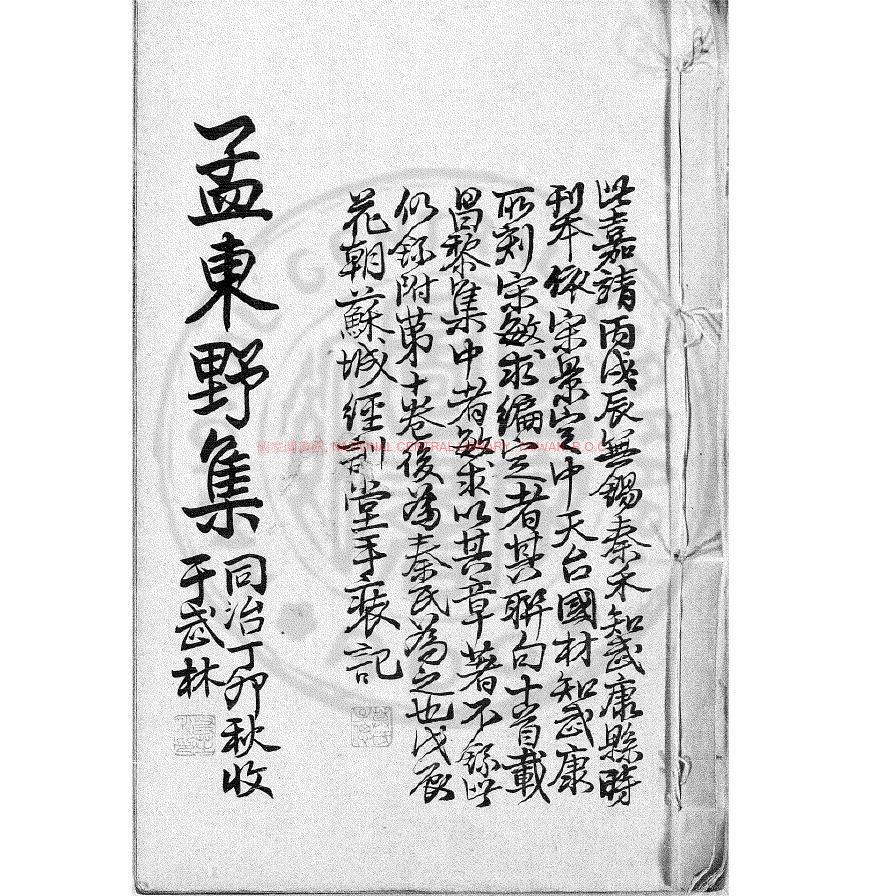 此嘉靖丙戌辰無錫秦禾知武康縣時
刊本依宋景定中天台國材知武康
所刻宋敏求編定者其聯句十首載
昌黎集中者敏求以其章著不錄此
仍錄附第十卷後為秦氏為之也戊辰
花朝蘇城經訓堂手裝記
孟東野集
同治丁卯秋收
于武林
國家圖書館, NATIONAL CENTRAL LIBRARY, TAIWAN, R.O.C.